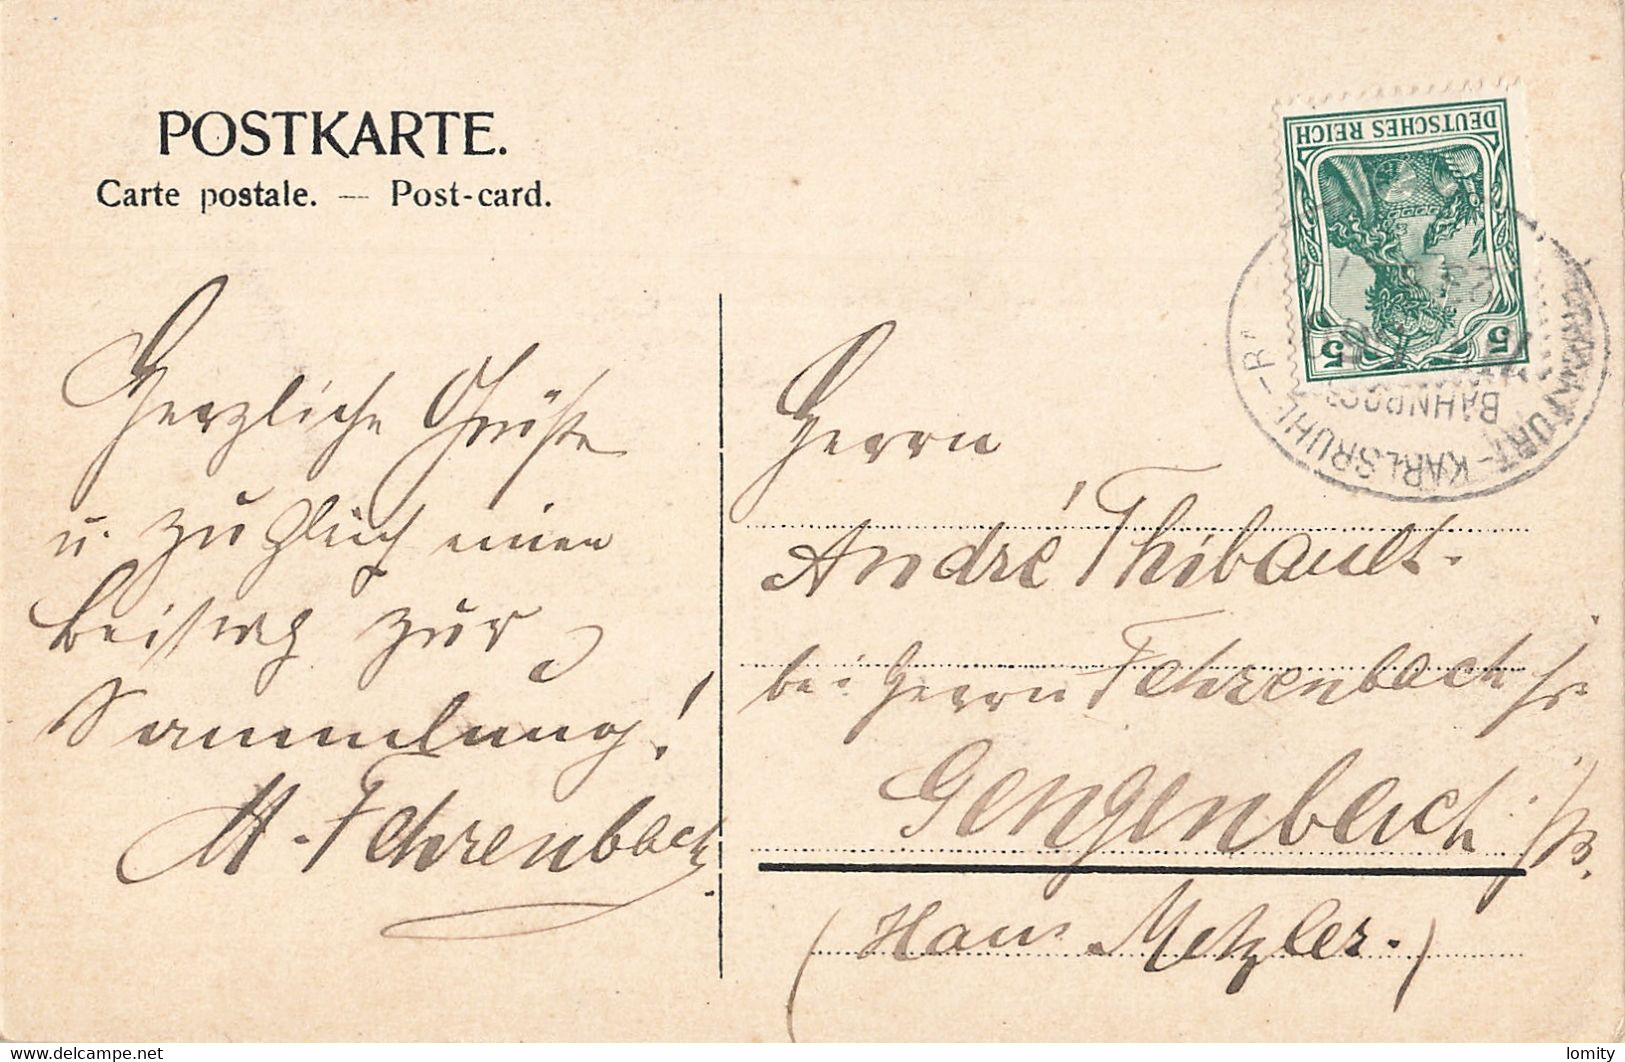 POSTKARTE.
Carte postale. — Post-card.
Herzliche Grüße
u. zugleich einen
Beitrag zur
Sammlung!
A. Fehrenbach
DEUTSCHES REICH
5 5
FRANKFURT-KARLSRUHE
BAHNPOST
Herrn
André Thibault.
bei Herrn Fehrenbach
Gengenbach i/B.
(Haus Metzler.)
www.delcampe.net
lomity